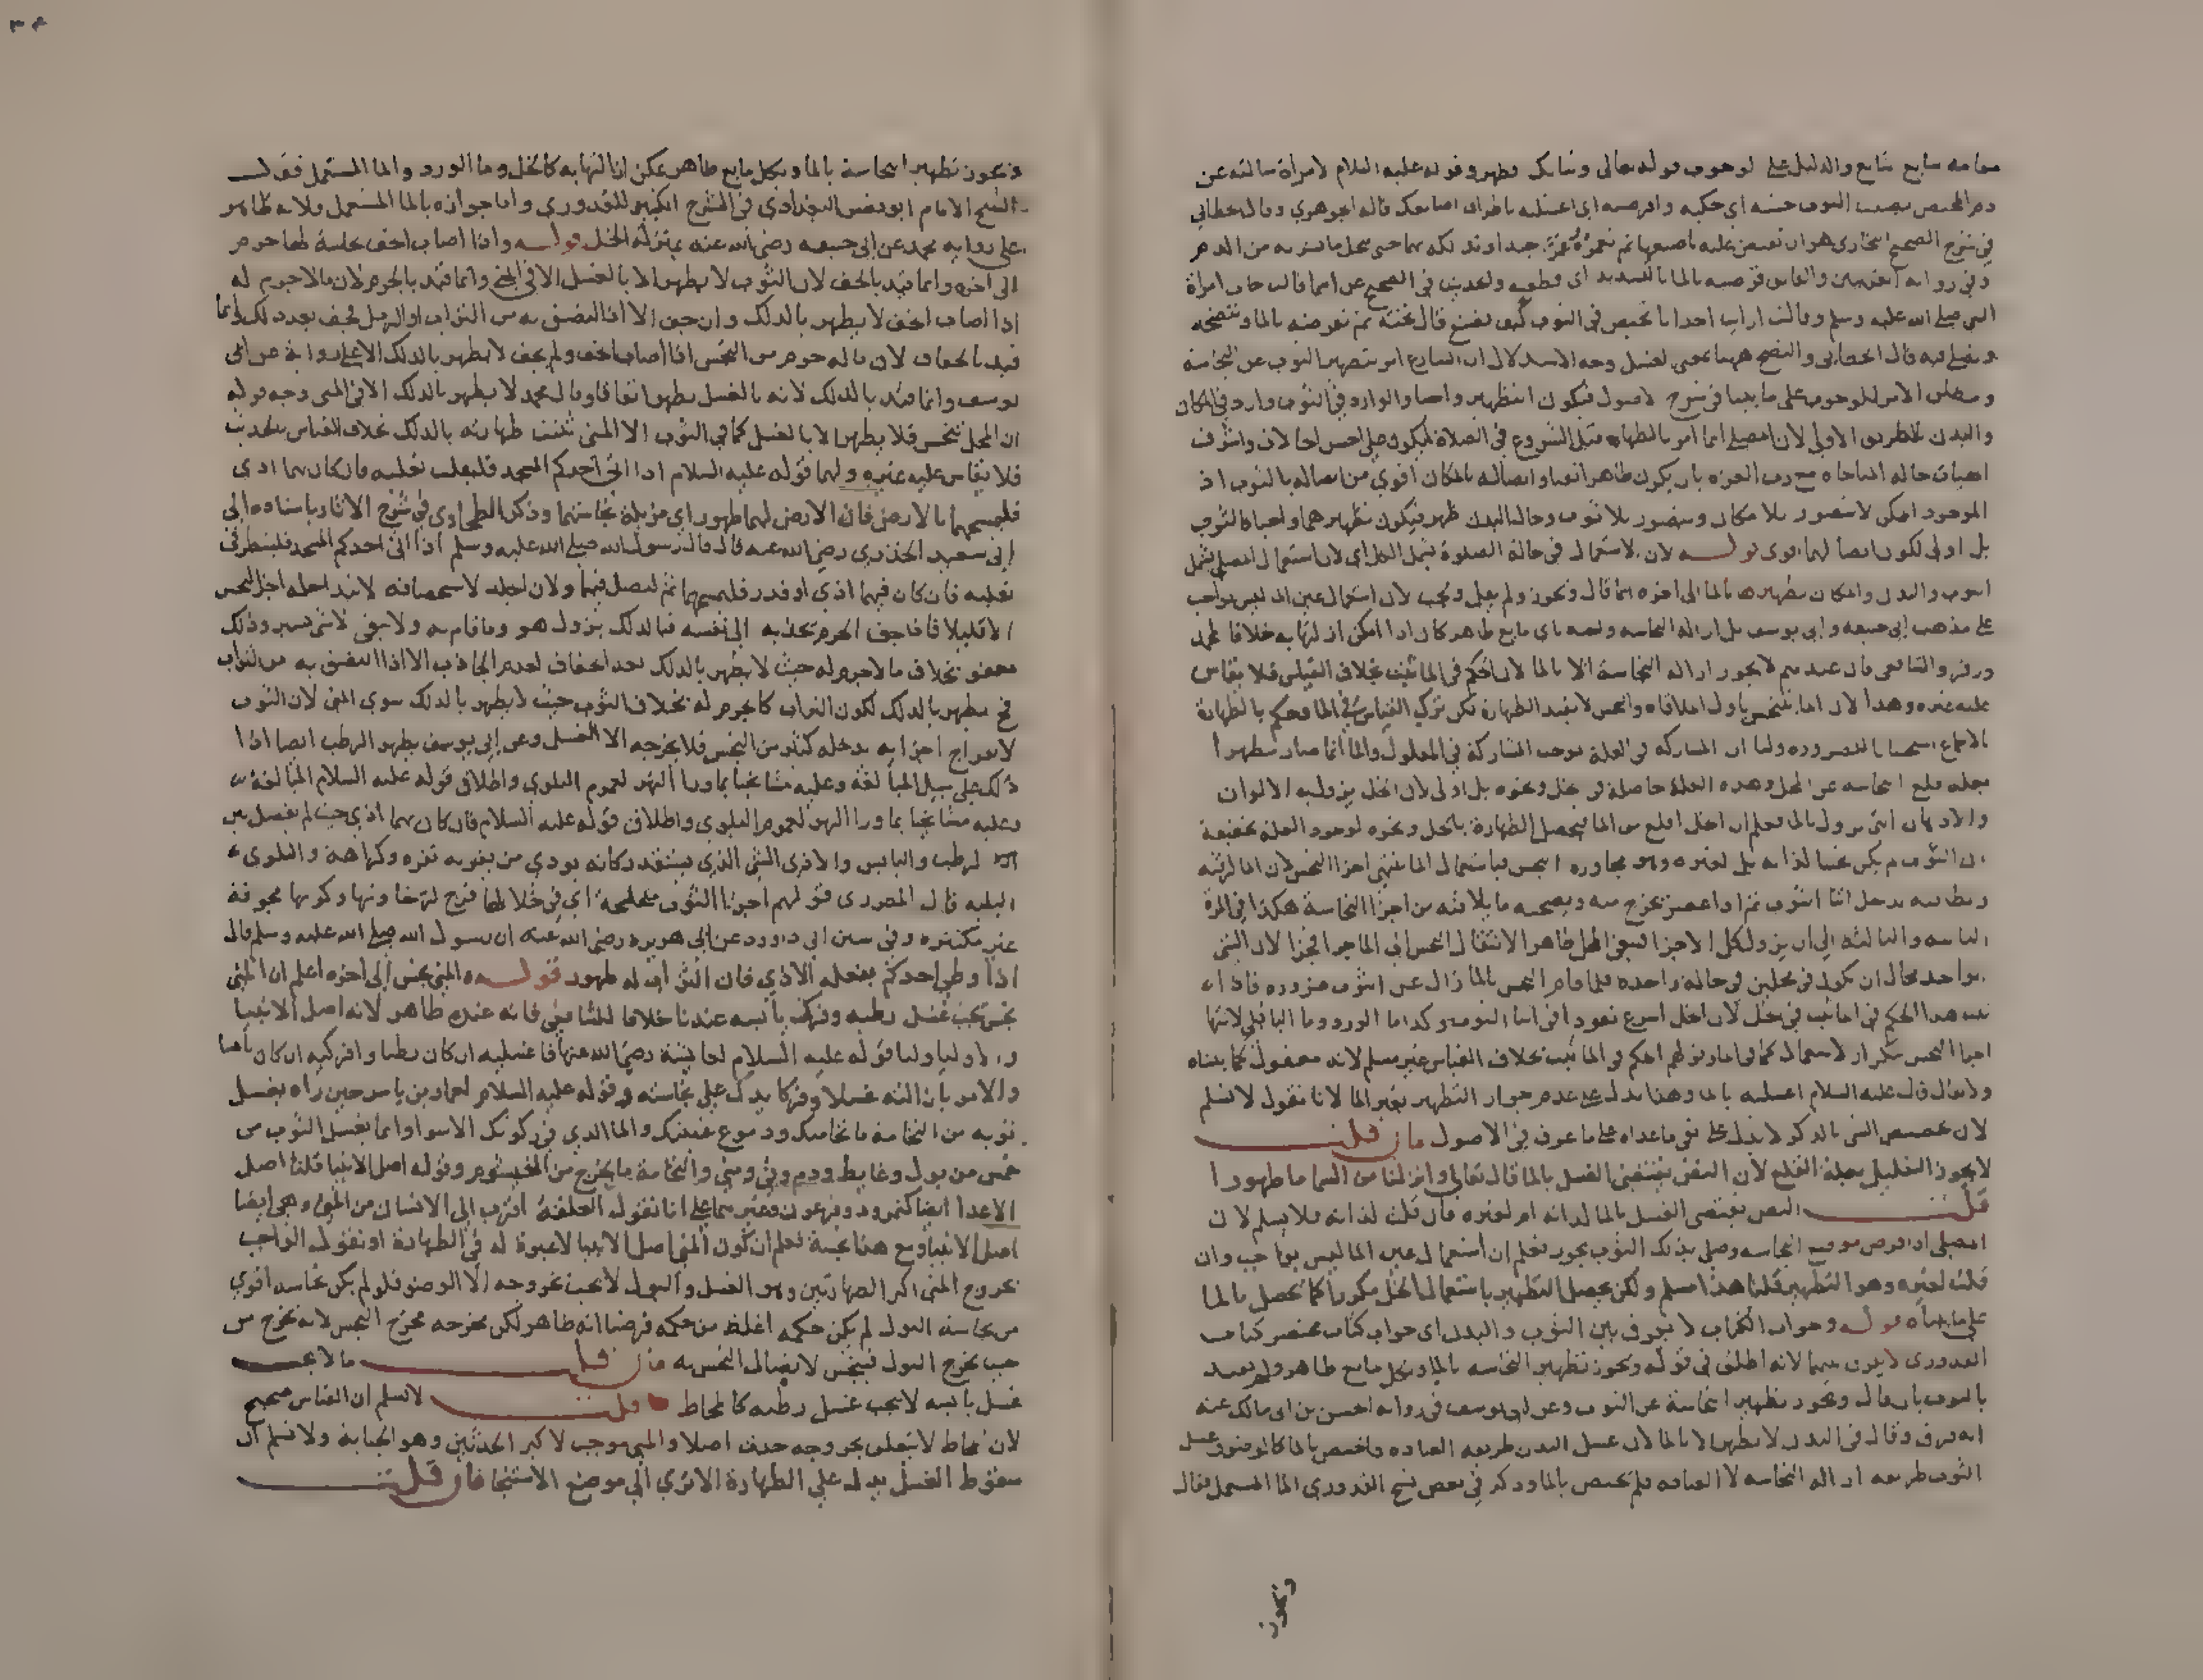 مقامه سايع شايع والدليل على لوجوب قوله تعالى وثيابك فطهر وقوله عليه السلام لامرأة سالته عن
دم الحيض يصيب الثوب حتيه اي حكيه واقرصيه اي اغسليه باطراف اصابعك قاله الجوهري وقال الخطابي
في شرح الصحيح البخاري هو ان تقبض عليه باصبعها ثم تغمزه غمزا جيدا وتدلكه بها حتى ينحل ما تشربه من الدم
النبي صلى الله عليه وسلم وقالت ارايت احدانا تحيض في الثوب كيف تصنع قال تحته ثم تقرضه بالما وتنضحه
وتصلي فيه قال الخطابي والنضح ههنا بمعنى الغسل وجه الاستدلال ان الشارع امر بتطهير الثوب عن النجاسة
ومطلق الامر للوجوب على ما بينا في شرح الاصول فيكون التطهير واجبا والوارد في الثوب وارد في المكان
والبدن بالطريق الاولى لان المصلي انما امر بالطهارة قبل الشروع في الصلاة ليكون على احسن احالاته واشرف
احيان حاله المناجاة مع رب العزة بان يكون طاهرا نقيا واتصاله بالمكان اقوى من اتصاله بالثوب اذ
الموجود الممكن لا يتصور بلا مكان ويتصور بلا ثوب وحال البدن ظهر فيكون تطهيرهما واجبا كالثوب
بل اولى لكون اتصالهما اقوى قوله لان الاستعمال في حالة الصلوة يشمل الكل اي لان استعمال المصلي يشمل
الثوب والبدن والمكان تطهيرها بالما الى اخره انما قال ويجوز ولم يقل ويجب لان استعمال عين الما ليس بواجب
على مذهب ابي حنيفه وابي يوسف بل ازالة النجاسه واجبه باي مايع طاهر كان اذا امكن ازالتها به خلافا لمحمد
وزفر والشافعي فان عندهم لا يجوز ازالة النجاسة الا بالما لان الحكم في الما ثبت بخلاف القياس فلا يقاس
عليه غيره وهذا لان الما يتنجس باول الملاقاة والنجس لا يفيد الطهارة لكن ترك القياس في الما وحكم بالطهارة
بالاجماع استحسانا للضرورة ولنا ان المشاركة في العلة توجب المشاركة في المعلول والما انما صار مطهرا
بعلة قلع النجاسة عن المحل وهذه العلة حاصلة في الخل ونحوه بل اولى لان الخل يزول به الالوان
والادهان التي لا تزول بالما فعلم ان الخل اقلع من الما فيحصل الطهارة بالخل ونحوه لوجود العلة بحقيقة
ان الثوب لم يكن نجسا لذاته بل لغيره وهو مجاورة النجس فباستعمال الما تنتهي اجزا النجس لان الما لرقته
ولطافته يدخل اثنا الثوب ثم اذا عصر يخرج منه ويصحبه ما يلاقيه من اجزا النجاسة هكذا في المرة
الثانيه والثالثه الى ان يزول كل الاجزا فيبقى المحل طاهرا لانتقال النجس الى الما جزا فجزا لان الشي
الواحد محال ان يكون في محلين في حالة واحده فلما قام النجس بالما زال عن الثوب ضرورة فاذا
ولا يقال قال عليه السلام اغسليه بالما وهذا يدل على عدم جواز التطهير بغير الما لانا نقول لا نسلم
لان تخصيص الشي بالذكر لا يدل على نفي ما عداه على ما عرف في الاصول فان قلت
لا يجوز التعليل بعلة القلع لان النص يقتضي الغسل بالما قال تعالى وانزلنا من السما ما طهورا
قلت النص يقتضي الغسل بالما لذاته ام لغيره فان قلت لذاته فلا يسلم لان
المصلي اذا قرض موضع النجاسه وصلى بذلك الثوب يجوز فعلم ان استعمال عين الما ليس بواجب وان
قلت لغيره وهو التطهير قلنا هذا مسلم ولكن يحصل التطهير باستعمال الخل مكررا كما يحصل بالما
على ما بيناه قوله وجواب الكتاب لا يفرق بين الثوب والبدن اي جواب كتاب مختصر كتاب
القدوري لا يفرق بينهما لانه اطلق في قوله ويجوز تطهير النجاسه بالما وبكل مايع طاهر ولم يقيد
بالثوب بان قال ويجوز تطهير النجاسة عن الثوب وعن ابي يوسف في رواية الحسن بن ابي مالك عنه
انه فرق وقال في البدن لا يطهر الا بالما لان غسل البدن طريقه العباده فاختص بالما كالوضو وغسل
الثوب طريقه ازالة النجاسه لا العباده فلم يختص بالما وذكر في بعض نسخ القدوري الما المستعمل فقال
ويجوز
ويجوز تطهير النجاسة بالما وبكل مايع طاهر يمكن ازالتها به كالخل وما الورد والما المستعمل فقال
الشيخ الامام ابو نصر البغدادي في الشرح الكبير للقدوري واما جوازه بالما المستعمل فلانه طاهر
على رواية محمد عن ابي حنيفه رضي الله عنه بمنزلة الخل قوله واذا اصاب الخف نجاسة لها جرم
الى اخره وانما قيد بالخف لان الثوب لا يطهر الا بالغسل الا في المني وانما قيد بالجرم لان ما لا جرم له
اذا اصاب الخف لا يطهر بالدلك وان جف الا اذا التصق به من التراب او الرمل فجف بعد دلك وانما
قيد بالجفاف لان ما له جرم من النجس اذا اصاب الخف ولم يجف لا يطهر بالدلك الا على رواية عن ابي
يوسف وانما قيد بالدلك لانه بالغسل يطهر اتفاقا وقال محمد لا يطهر بالدلك الا في المني وجه قوله
ان المحل تنجس فلا يطهر الا بالغسل كما في الثوب الا المني ثبتت طهارته بالدلك بخلاف القياس بالحديث
فلا يقاس عليه غيره ولهما قوله عليه السلام اذا اتى احدكم المسجد فليقلب نعليه فان كان بهما اذى
فليمسحهما بالارض فان الارض لهما طهور اي مزيلة نجاستهما وذكر الطحاوي في شرح الاثار باسناده الى
ابي سعيد الخدري رضي الله عنه قال قال رسول الله صلى الله عليه وسلم اذا اتى احدكم المسجد فلينظر في
نعليه فان كان فيهما اذى او قذر فليمسحهما ثم ليصل فيهما ولان الجلد لاستحصافه لا يتداخله اجزا النجس
الا قليلا فاذا جف الجرم تجذبه الى نفسه فبالدلك يزول هو وما قام به ولا يبقى الا شي يسير وذلك
معفو بخلاف ما لا جرم له حيث لا يطهر بالدلك بعد الجفاف لعدم الجاذب الا اذا التصق به من التراب
فح يطهر بالدلك لكون التراب كالجرم له بخلاف الثوب حيث لا يطهر بالدلك سوى المني لان الثوب
لانفراج اجزايه يدخله كثير من النجس فلا يخرجه الا الغسل وعن ابي يوسف يطهر الرطب ايضا اذا
دلك على سبيل المبالغة وعليه مشايخنا بما ورا النهر لعموم البلوى واطلاق قوله عليه السلام المبالغة
وعليه مشايخنا بما ورا النهر لعموم البلوى واطلاق قوله عليه السلام فان كان بهما اذى حيث لم يفصل بين
الرطب واليابس والاذى الشي الذي يستقذر كانه يوذي من يقربه نفرة وكراهة والبلوى
البليه قال المطرزي قولهم اجزا الثوب متخلخلة اي في خلالها فرج لرخاوتها وكونها مجوفة
غير مكتنزه وفي سنن ابي داوود عن ابي هريرة رضي الله عنه ان رسول الله صلى الله عليه وسلم قال
اذا وطي احدكم بنعله الاذى فان التراب له طهور قوله والمني نجس الى اخره اعلم ان المني
نجس يجب غسل رطبه وفرك يابسه عندنا خلافا للشافعي فانه عنده طاهر لانه اصل الانبيا
والاوليا ولنا قوله عليه السلام لعايشة رضي الله عنها فاغسليه ان كان رطبا وافركيه ان كان يابسا
والامر بازالته غسلا وفركا يدل على نجاسته وقوله عليه السلام لعمار بن ياسر حين راه يغسل
ثوبه من النخامة ما نخامتك ودموع عينيك والما الذي في ركوتك الا سوا وانما يغسل الثوب من
خمس من بول وغايط ودم وقي ومني والنخامة ما يخرج من الخيشوم وقوله اصل الانبيا قلنا اصل
الاعدا ايضا كنمرود وفرعون وغيرهما على انا نقول العلقة اقرب الى الانسان من المني وهي ايضا
اصل الانبيا ومع هذا نجسة فعلم ان كون المني اصل الانبيا لا عبرة له في الطهارة او نقول الواجب
بخروج المني اكبر الطهارتين وهو الغسل والبول لا يجب بخروجه الا الوضو فلو لم يكن نجاسته اقوى
من نجاسة البول لم يكن حكمه اغلظ من حكمه فرضنا انه طاهر لكن مخرجه مخرج النجس لانه يخرج من
حيث يخرج البول فينجس لاتصال النجس به فان قيل ما لا يجب
غسل يابسه لا يجب غسل رطبه كالمخاط قلت لا نسلم ان القياس صحيح
لان المخاط لا يتعلق بخروجه حدث اصلا والمني موجب لاكبر الحدثين وهو الجنابة ولا نسلم ان
سقوط الغسل يدل على الطهارة الا ترى الى موضع الاستنجا فان قلت